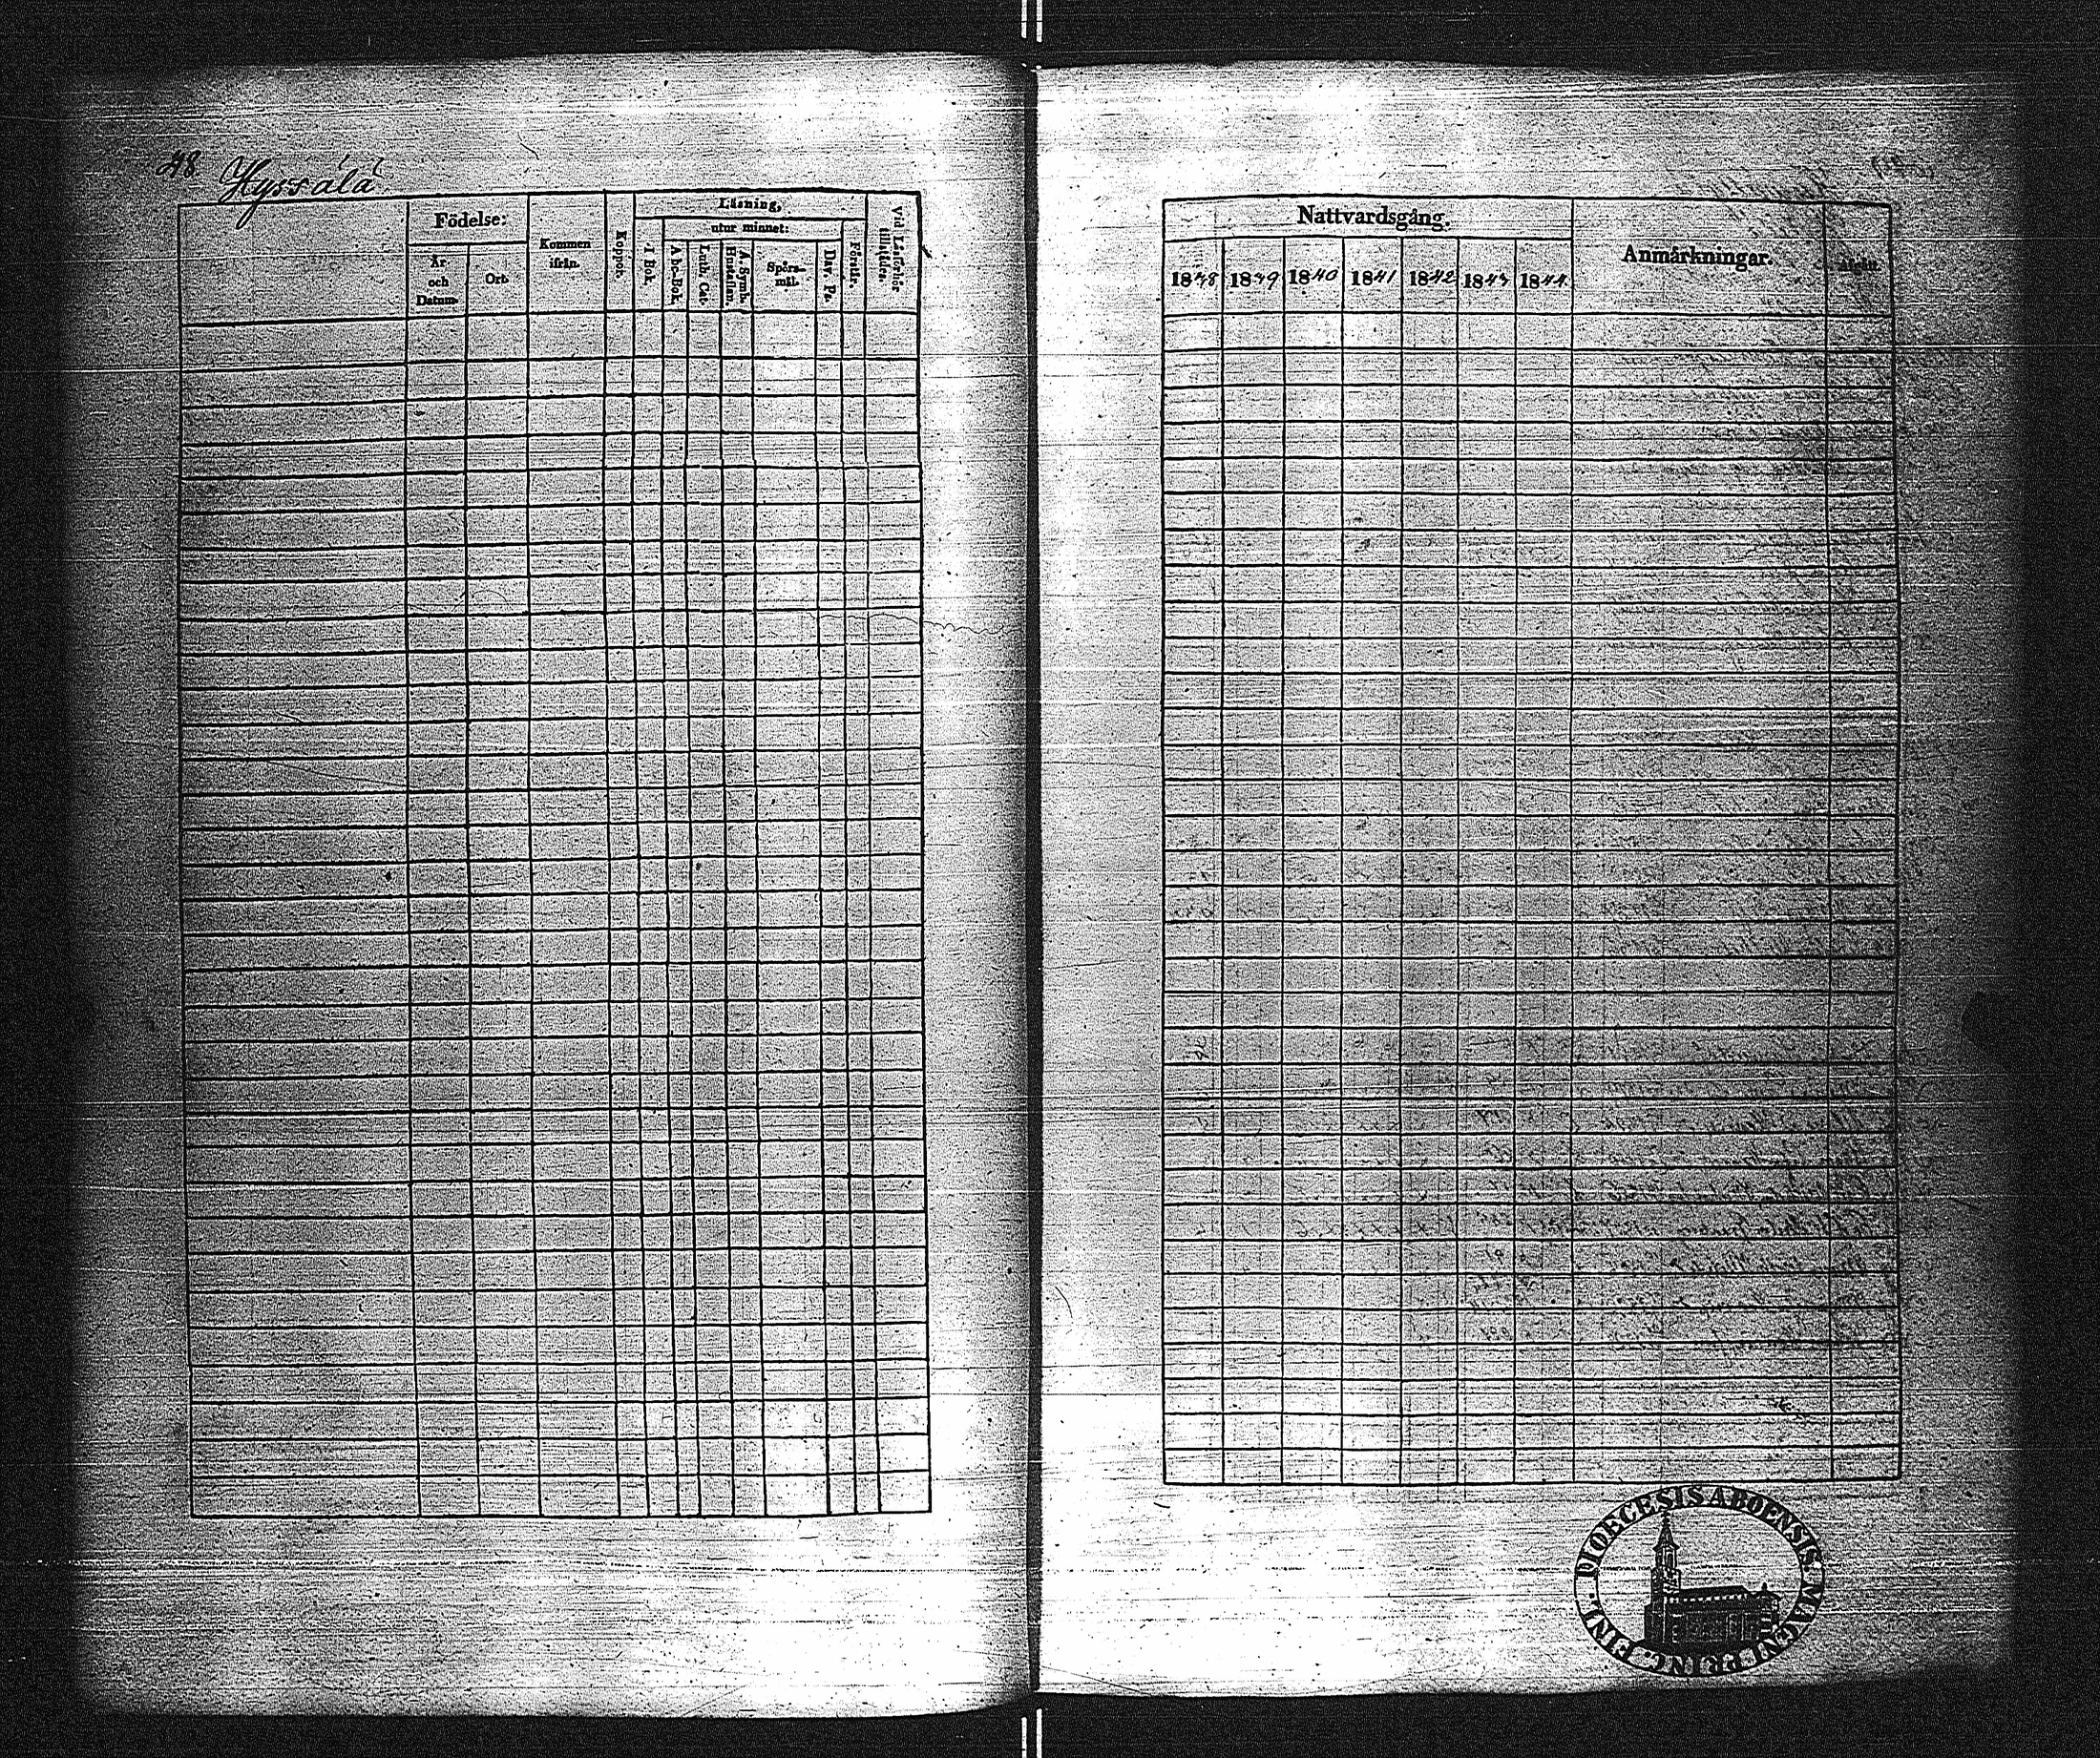 48 Hyssälä
Födelse:
År och Datum.
Ort.
Kommen ifrån.
Koppor.
Läsning,
I Bok.
utur minnet:
A bc-Bok.
Luth. Cat.
A. Symb.
Spörs-
mål.
Dav. Ps.
Förstår.
Nattvardsgång.
1838 1839 1840 1841 1842 1843 1844
Anmärkningar.
Afgått.
DIOECESIS ABOENSIS MAGNI PRINC. FINL.